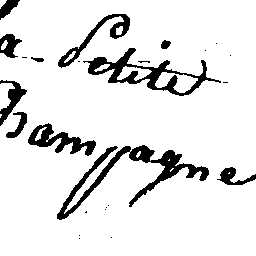 a Petite
Champagne